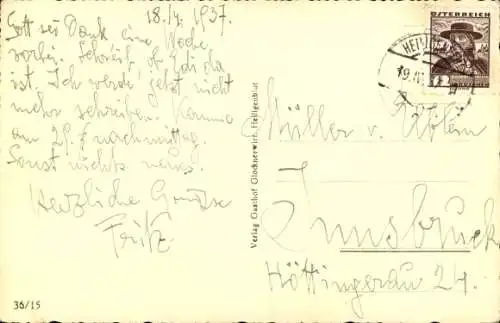 18./7. 1937.
Gott sei Dank eine Woche
vorbei. Schreib, ob Edi da
ist. Ich werde jetzt nicht
mehr schreiben. Komme
am 29. nachmittag.
Sonst nichts neues.
Herzliche Grüsse
Fritz
36/15
Verlag Gasthof Glocknerwirt, Heiligenblut
ÖSTERREICH
HEILI
19.
Müller v.
Innsbruck
Höttingerau 24.